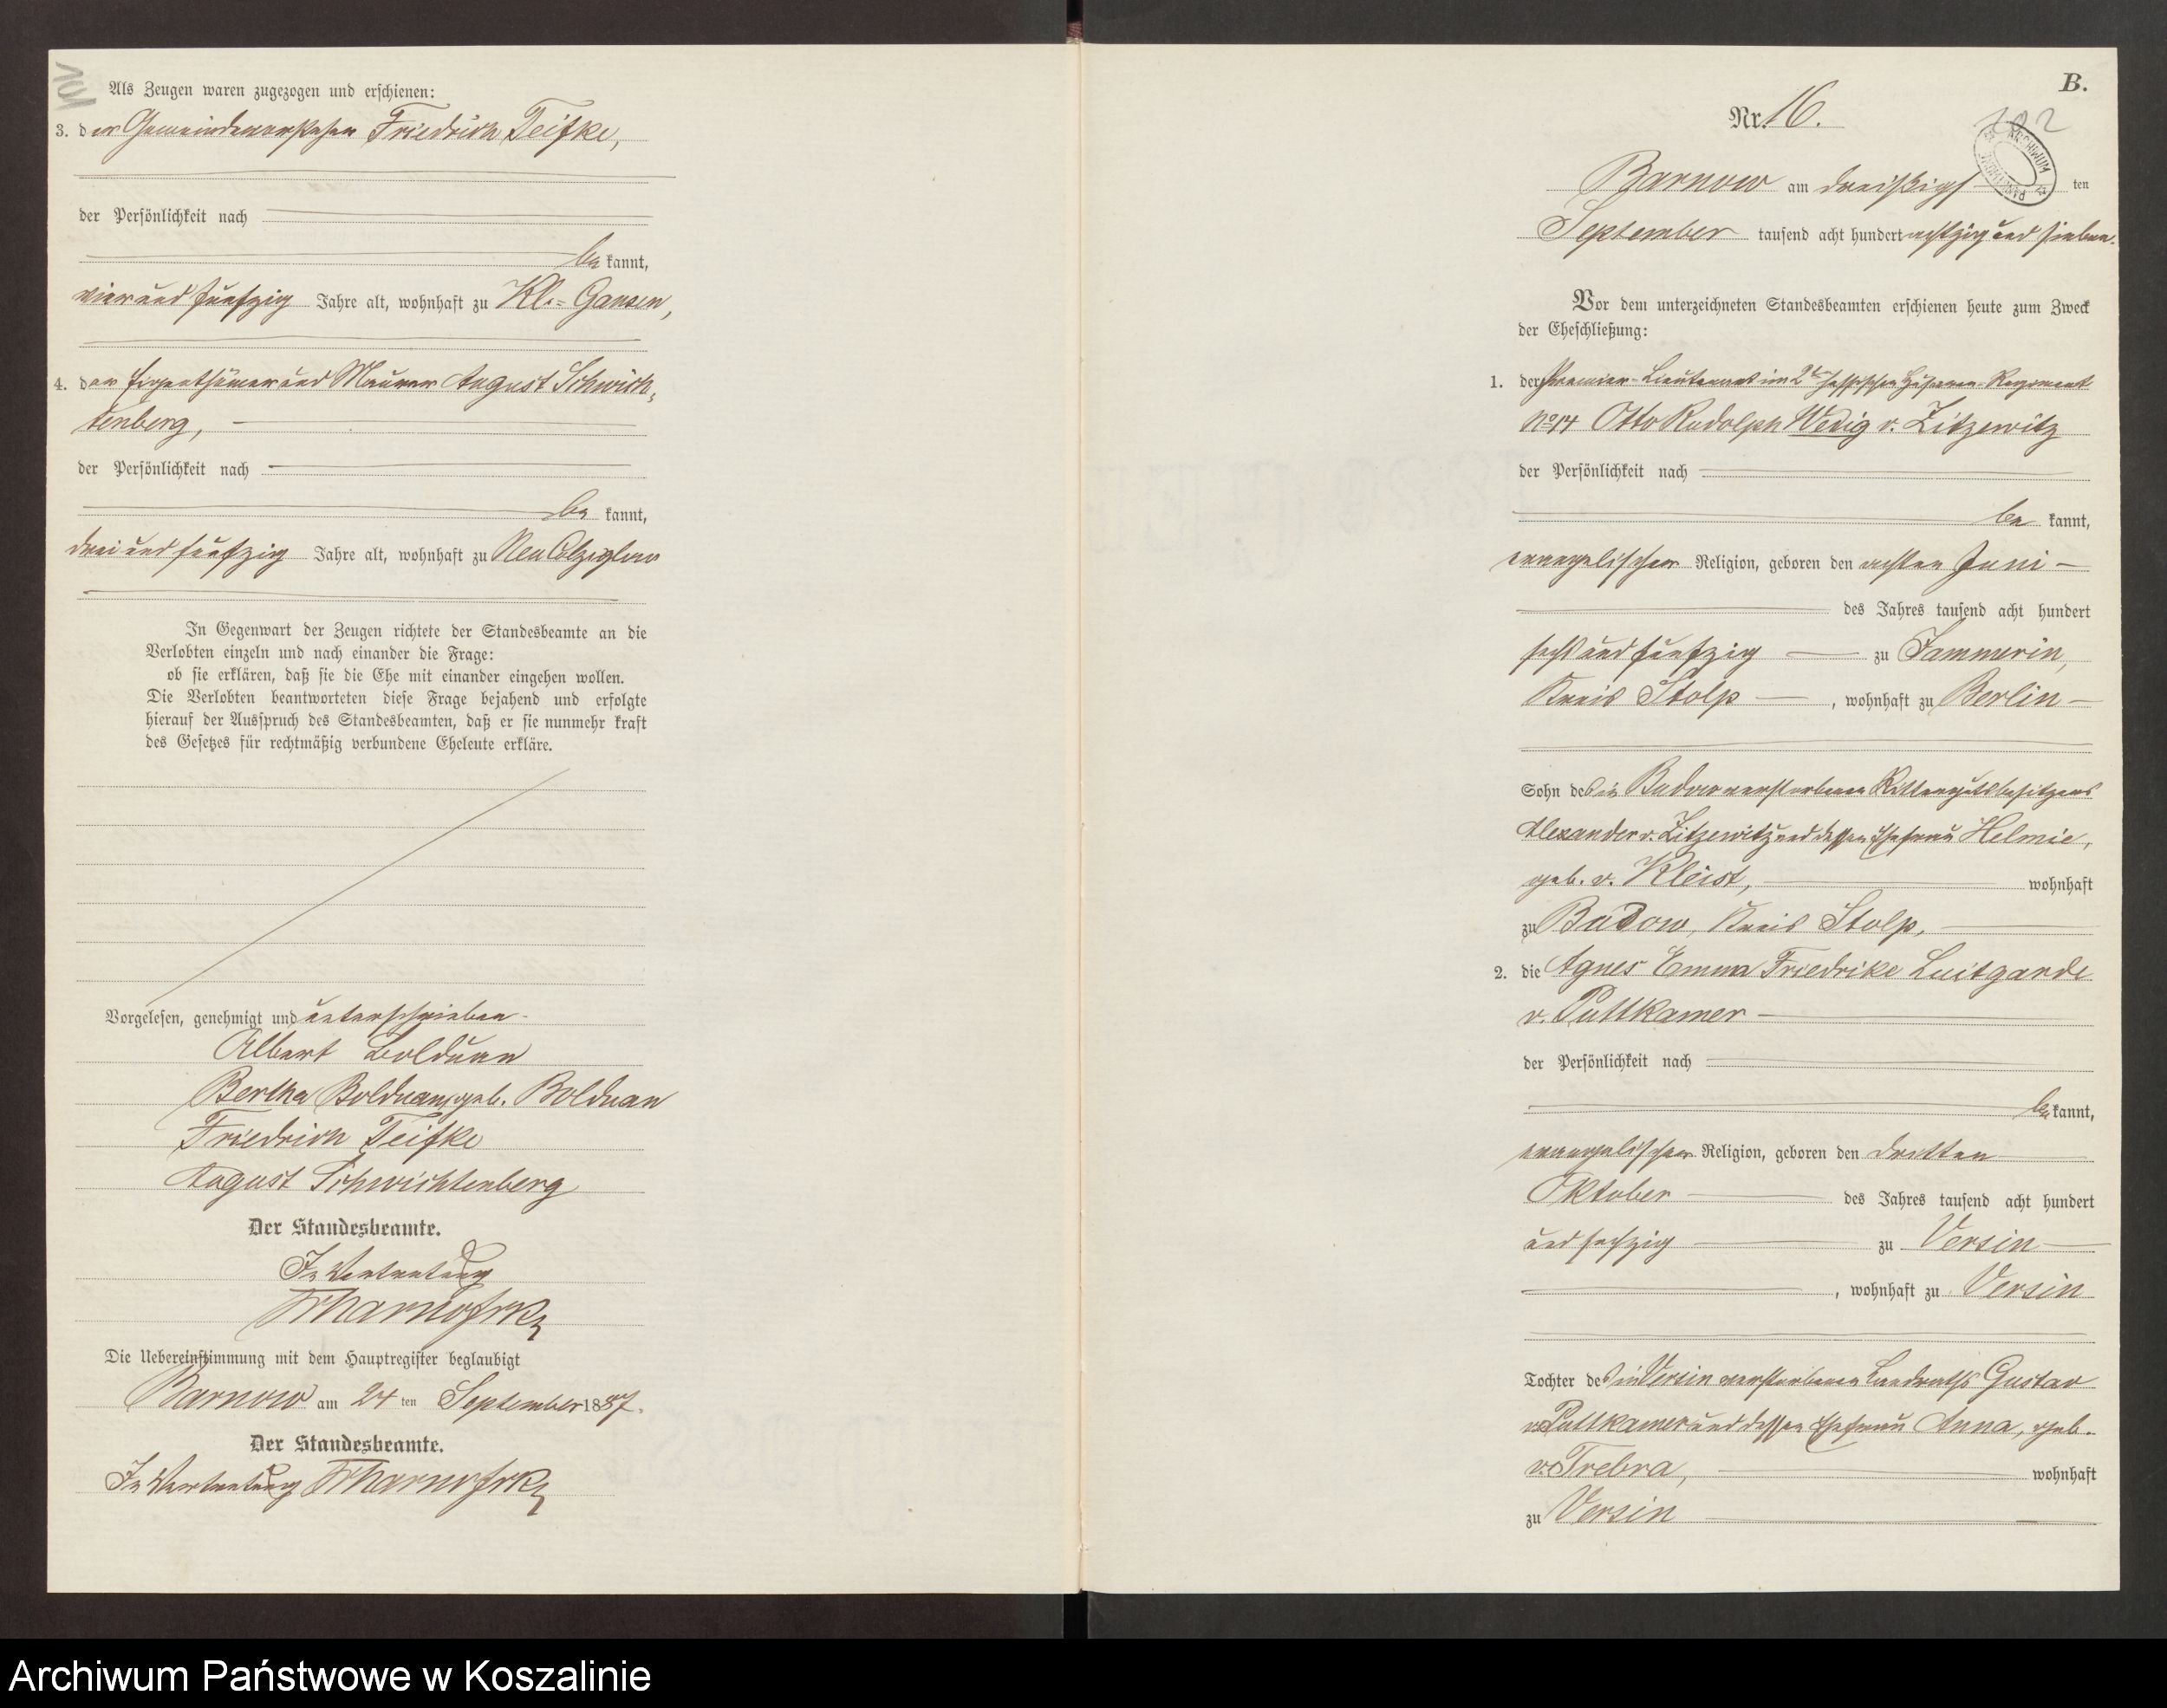 101
Als Zeugen waren zugezogen und erschienen:
3. der Gemeindevorsteher Friedrich Teifke,
der Persönlichkeit nach
be kannt,
vier und fünfzig Jahre alt, wohnhaft zu Kl.-Gansen,
4. der Eigenthümer und Maurer August Schwich-
tenberg,
der Persönlichkeit nach
be kannt,
drei und fünfzig Jahre alt, wohnhaft zu Neu Colziglow
In Gegenwart der Zeugen richtete der Standesbeamte an die
Verlobten einzeln und nach einander die Frage:
ob sie erklären, daß sie die Ehe mit einander eingehen wollen.
Die Verlobten beantworteten diese Frage bejahend und erfolgte
hierauf der Ausspruch des Standesbeamten, daß er sie nunmehr kraft
des Gesetzes für rechtmäßig verbundene Eheleute erkläre.
Vorgelesen, genehmigt und unterschrieben.
Albert Bolduan
Bertha Bolduan, geb. Bolduan
Friedrich Teifke
August Schwichtenberg
Der Standesbeamte.
In Vertretung
Die Uebereinstimmung mit dem Hauptregister beglaubigt
Barnow am 24 ten September 1887.
Der Standesbeamte.
In Vertretung
B.
Nr. 16.
102
ARCHIWUM
Barnow am dreißigs ten
September tausend acht hundert achtzig und sieben.
Vor dem unterzeichneten Standesbeamten erschienen heute zum Zweck
der Eheschließung:
1. der Premier-Lieutenant im 2ten hessischen Husaren-Regiment
No 14 Otto Rudolph Wedig v. Zitzewitz
der Persönlichkeit nach
be kannt,
evangelischer Religion, geboren den achten Juni
des Jahres tausend acht hundert
sechs und fünfzig zu Jammerin,
Kreis Stolp, wohnhaft zu Berlin
Sohn des in Budow verstorbenen Rittergutsbesitzers
Alexander v. Zitzewitz und dessen Ehefrau Helmie,
geb. v. Kleist, wohnhaft
zu Budow, Kreis Stolp,
2. die Agnes Emma Friedrike Luitgarde
v. Puttkamer
der Persönlichkeit nach
be kannt,
evangelischer Religion, geboren den dritten
Oktober des Jahres tausend acht hundert
und sechzig zu Versin
, wohnhaft zu Versin
Tochter des in Versin verstorbenen Landraths Gustav
v. Puttkamer und dessen Ehefrau Anna, geb.
v. Trebra, wohnhaft
zu Versin
Archiwum Państwowe w Koszalinie